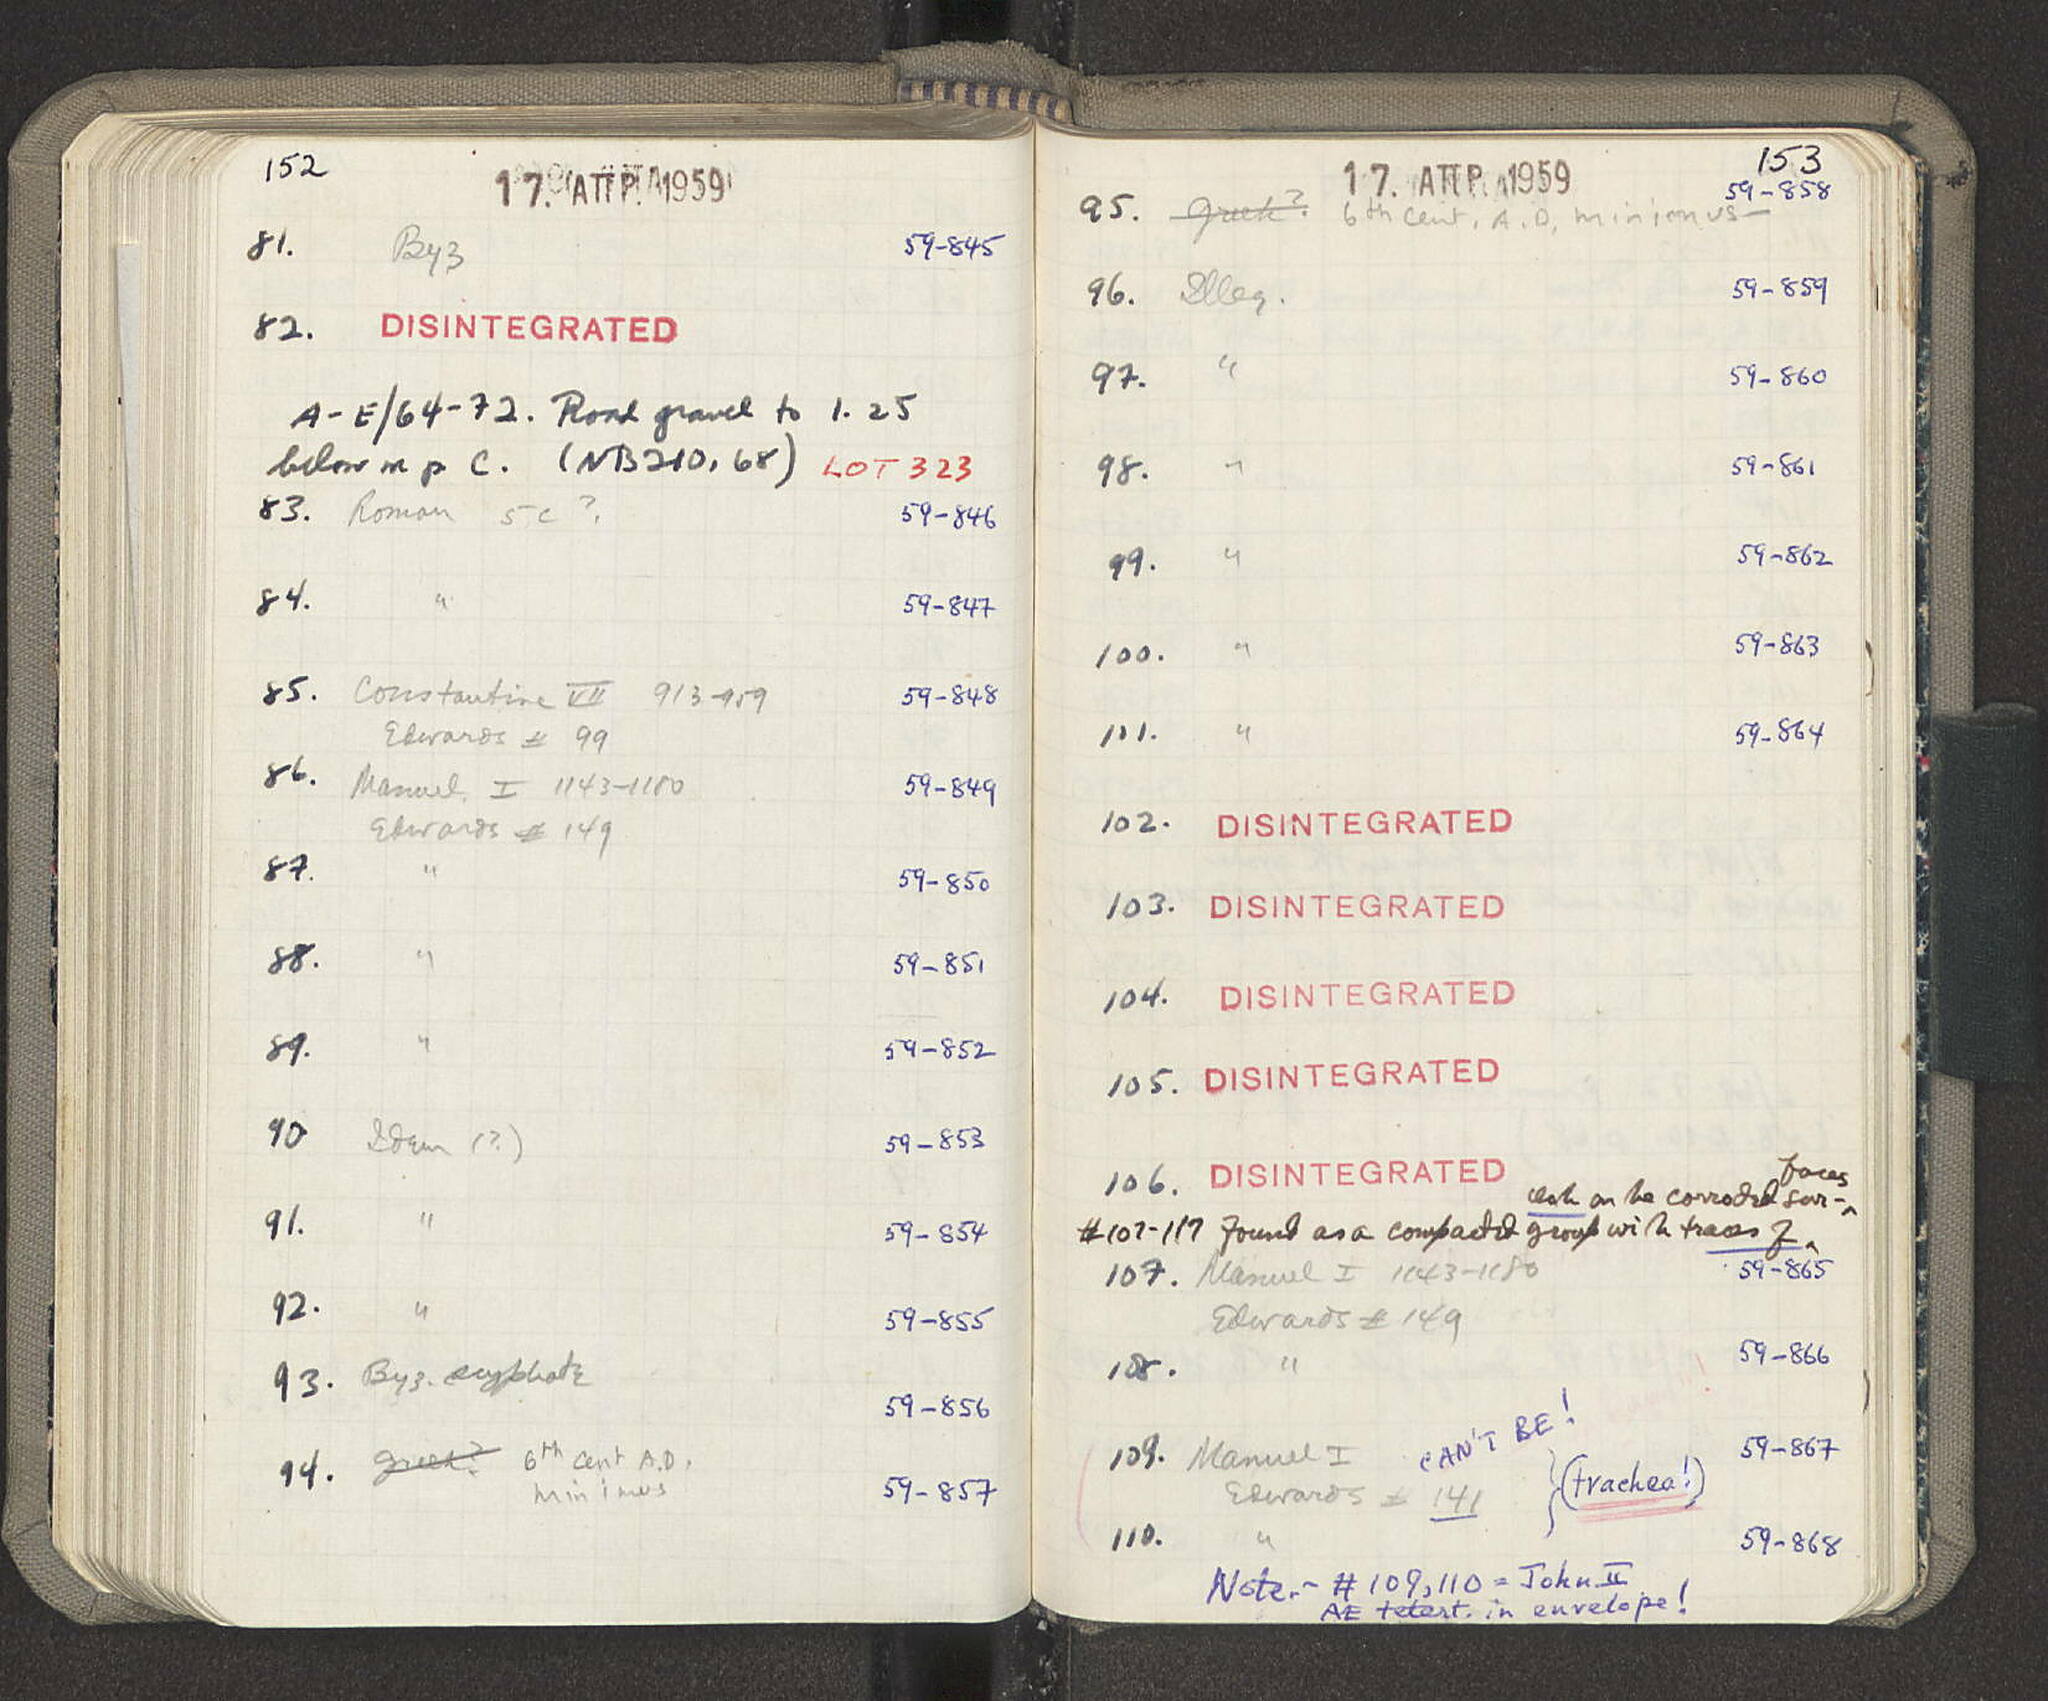 152
17. ΑΠΡ. 1959
81. Byz 59-845
82. DISINTEGRATED
A-E/64-72. Road gravel to 1.25
below m p C. (NB210, 68) LOT 323
83. Roman 5 C ?. 59-846
84. " 59-847
85. Constantine VII 913-959 59-848
Edwards # 99
86. Manuel I 1143-1180 59-849
Edwards # 149
87. " 59-850
88. " 59-851
89. " 59-852
90 Idem (?) 59-853
91. " 59-854
92. " 59-855
93. Byz. scyphate 59-856
94. Greek? 6th cent A.D.
minimus 59-857
153
17. ΑΠΡ. 1959
59-858
95. Greek?. 6th cent. A.D, minimus
96. Illeg. 59-859
97. " 59-860
98. " 59-861
99. " 59-862
100. " 59-863
101. " 59-864
102. DISINTEGRATED
103. DISINTEGRATED
104. DISINTEGRATED
105. DISINTEGRATED
106. DISINTEGRATED
faces
on the corroded sur-
#107-117 found as a compacted group with traces of
107. Manuel I 1143-1180 59-865
Edwards # 149
108. " 59-866
109. Manuel I CAN'T BE! 59-867
Edwards # 141 (trachea!)
110. " 59-868
Note.- # 109,110 = John II
AE tetart. in envelope!